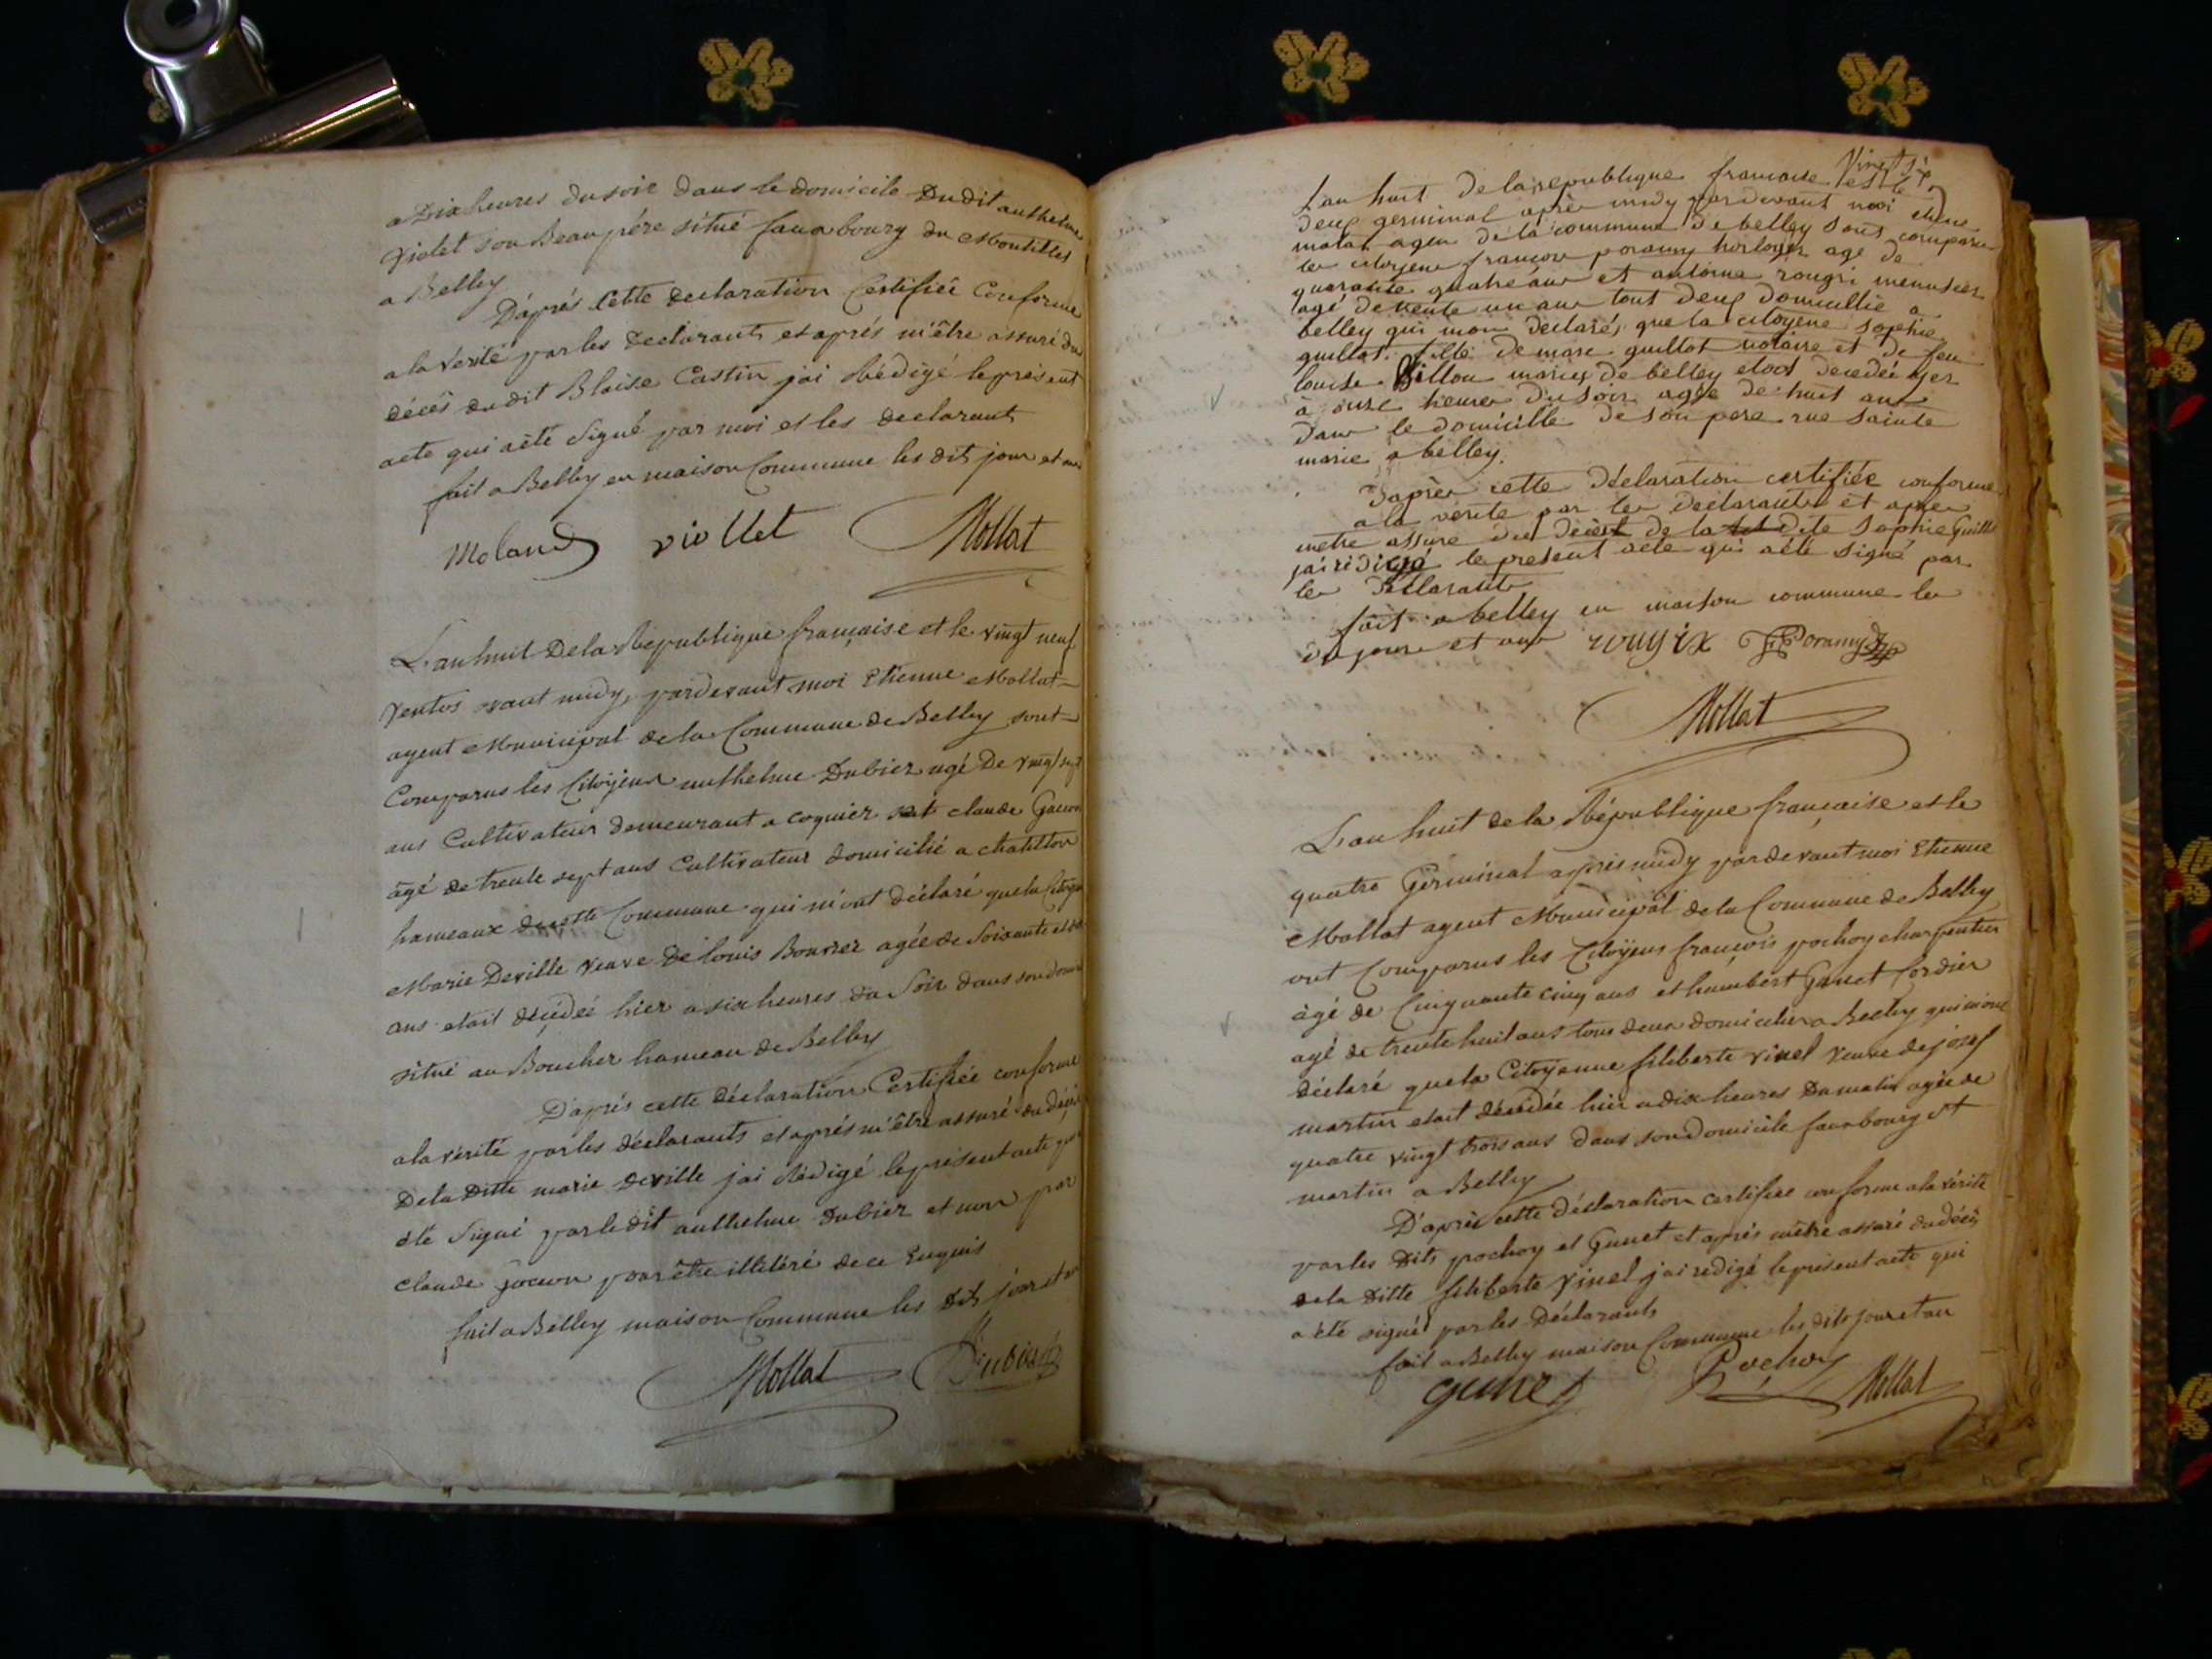 a Dix heures du soir dans le domicile Du dit anthelme
Violet son Beaupére situé fauxbourg du
a Belley
D'aprés Cette declaration Certifiée Conforme
a la Verité par les declarants et aprés m'être assuré du
décés du dit Blaise Castin jai Rédigé le présent
acte qui aété Signé par moi et les declarant
fait a Belley en maison Commune les dits jour et an
Moland viollet Mollat
L'an huit De la République française et le vingt neuf
Ventos avant midy, pardevant moi Etienne Mollat
agent Municipal de la Commune de Belley sont
Comparus les Citoyens anthelme Dubiez agé De vingt sept
ans Cultivateur demeurant a coynier et claude
âgé de trente sept ans Cultivateur domicilié a chatillon
hameaux de cette Commune qui m'ont déclaré que la Citoyen
Marie Deville Veuve de louis Bouvier agée de Soixante et
ans etait décédée hier a six heures du Soir dans son
situé au Boucher hameau de Belley
D'aprés cette déclaration Certifiée conforme
a la vérité par les déclarants et aprés m'être assuré du décés
De la Ditte marie deville jai Rédigé le présent acte qui
été Signé par le dit anthelme Dubiez et non par
claude pour être illitéré de ce Enquis
fait a Belley maison Commune les Dits jour et an
Mollat Dubiez
L'an huit de la republique francaise et le
deux germinal aprèr midy pardevant moi etiene
molat agen de la commune de belley sont comparu
les citoyens françois poramy horloger age de
quarante quatre ans et antoine rougri menusier
agé de trente un ans tout deux domicillié a
belley qui mon declarés que la citoyene sophie
guillot fille de marc guillot notaire et de feu
louise Billon mariés de belley etoit decedée yer
à onze heures du soir agée de huit ans
dans le domicille de son pere rue sainte
marie a belley.
daprès cette déclaration certifiée conforme
a la verite par les déclarantes et apres
metre assure du décès de la dite Sophie Guillot
jai rédigé le present acte qui aété signé par
les déclarants
fait a belley en maison commune les
dit jours et ans rougix Poramy
Mollat
L'an huit de la République française et le
quatre Germinal aprés midy pardevant moi Etienne
Mollat agent Municipal de la Commune de Belley
ont Comparus les Citoyens françois pochoy charpentier
âgé de Cinquante cinq ans et humbert Gunet Cordier
agé de trente huit ans tous deux domiciliés a Belley qui m'ont
déclaré que la Citoyenne filiberte vinel veuve de josef
martin etait décédée hier a dix heures Du matin agée de
quatre vingt trois ans dans son domicile fauxbourg st
martin a Belley
D'aprés cette déclaration certifiée conforme a la vérité
par les Dits pochoy et Gunet et aprés m'être assuré du décés
de la Ditte filiberte Vinel jai redigé le présent acte qui
a été signé par les Déclarants
fait a Belley maison Commune les dits jour et an
gunet Pochoy Mollat